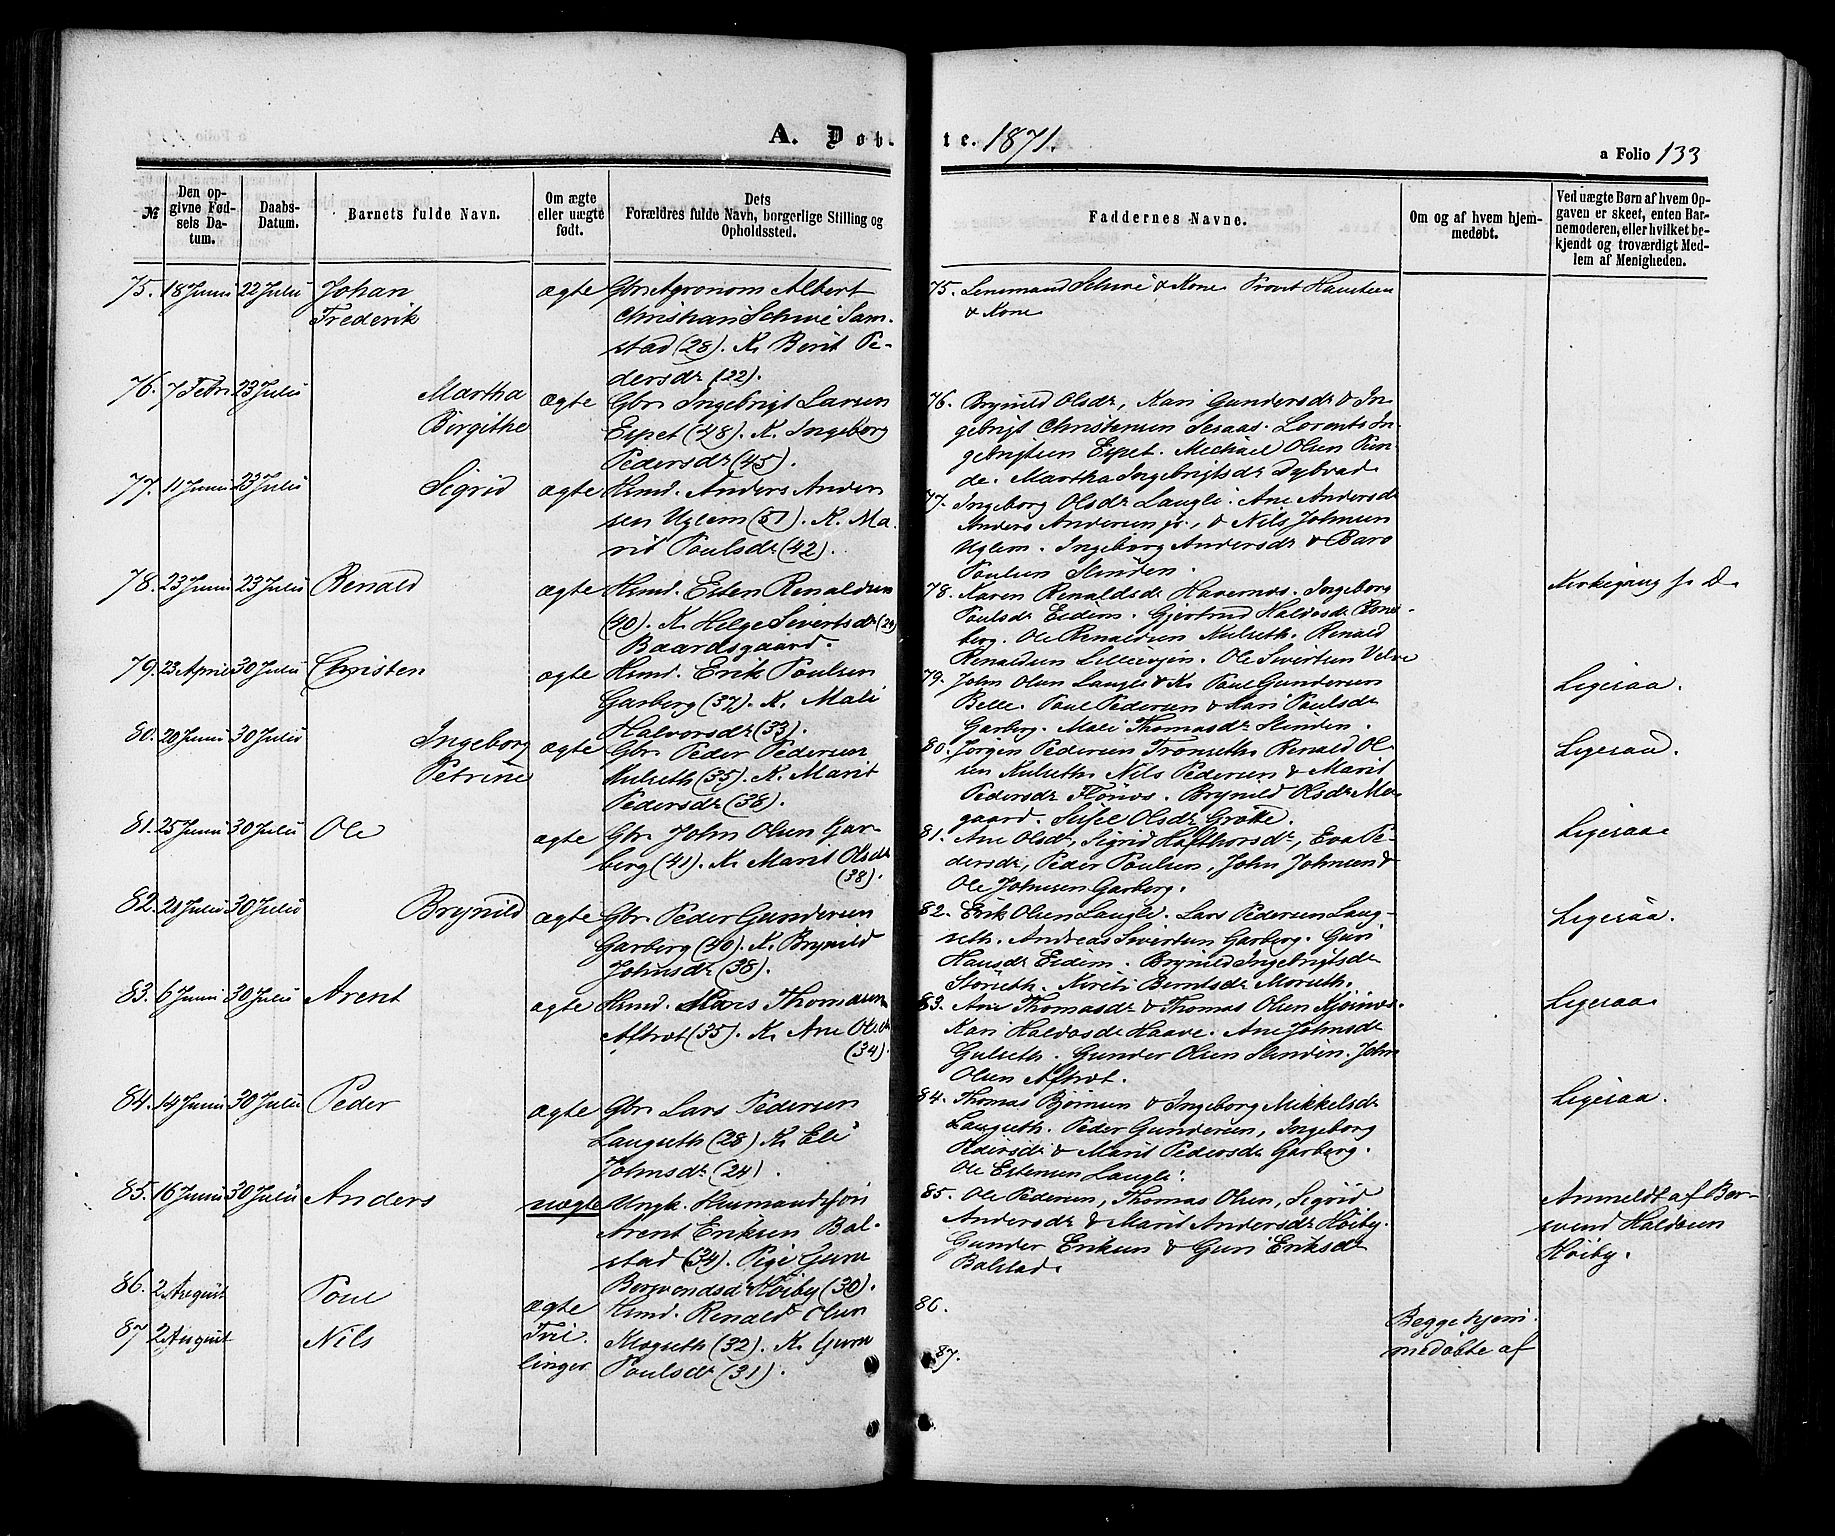 A. Døb-
te. 1871.
a Folio 133
№
Den op-
givne Fød-
sels Da-
tum.
Daabs-
Datum.
Barnets fulde Navn.
Om ægte
eller uægte
født.
Dets
Forældres fulde Navn, borgerlige Stilling og
Opholdssted.
Faddernes Navne.
Om og af hvem hjem-
medøbt.
Ved uægte Børn af hvem Op-
gaven er skeet, enten Bar-
nemoderen, eller hvilket be-
kjendt og troværdigt Med-
lem af Menigheden.
75. 18 Juni 22 Juli Johan ægte Gbr. Agronom Albert
Frederik Christian Schive Sam-
stad (28). K. Berit Pe-
dersdr (22).
75. Lensmand Schive & Kone Provst
& Kone
76. 7 Febr 23 Juli Martha ægte Gbr. Ingebrigt Larsen
Birgithe Espet (48). K. Ingeborg
Pedersdr (45).
76. Brynild Olsdr, Kari Gundersdr & In-
gebrigt Christensen Sesaas. Lorents In-
gebrigtsen Espet. Michael Olsen Run-
de. Martha Ingebrigtsdr Dybvad.
77. 11 Juni 23 Juli Sigrid ægte Hsmd. Anders Ander
sen Uglem (51). K. Ma-
rit Poulsdr (42).
77. Ingeborg Olsdr Laugli. Ane Andersdr
Anders Andersen jr., & Nils Johnsen
Uglem. Ingeborg Andersdr & Baro
Poulsen Slinden.
78. 23 Juni 23 Juli Renald ægte Hsmd. Esten Renaldsen
(40). K. Helge Sivertsdr (29)
Baardsgaard.
78. Karen Renaldsdr Havernes. Ingeborg
Paulsdr Eidem. Gjertrud Haldosdr Rone-
berg. Ole Renaldsen Kulseth. Renald
Renaldsen Lillevjen. Ole Sivertsen Velve
Kirkegang s. D.
79. 23 April 30 Juli Christen ægte Hsmd. Erik Poulsen
Garberg (37). K. Mali
Halvorsdr (33).
79. John Olsen Laugli & K. Paul Gundersen
Belle. Paul Pedersen & Kari Paulsdr
Garberg. Mali Thomasdr Slinden.
Ligesaa.
80. 20 Juni 30 Juli Ingeborg ægte Gbr. Peder Pedersen
Petrine Kulseth (35). K. Marit
Pedersdr (38).
80. Jørgen Pedersen Trønseth. Renald Ol-
sen Kulseth. Nils Pedersen & Marit
Pedersdr Flönes. Brynild Olsdr Mo-
gaard. Sissel Olsdr Grøtte.
Ligesaa.
81. 25 Juni 30 Juli Ole ægte Gbr. John Olsen Gar-
berg (41). K. Marit Olsdr
(38).
81. Ane Olsdr, Sigrid Hafthorsdr, Eva Pe-
dersdr, Peder Poulsen, John Johnsen &
Ole Johnsen Garberg.
Ligesaa
82. 21 Juli 30 Juli Brynild ægte Gbr. Peder Gundersen
Garberg (40). K. Brynild
Johnsdr (38).
82. Erik Olsen Laugli. Lars Pedersen Laug-
seth. Andreas Sivertsen Garberg. Guri
Hansdr Eidem. Brynild Ingebrigtsdr
Störseth. Kirsti Berntsdr Morseth.
Ligesaa.
83. 6 Juni 30 Juli Arent ægte Hsmd. Hans Thomasen
Aftret (35). K. Ane Olsdr
(34).
83. Ane Thomasdr & Thomas Olsen Kjøsnes.
Kari Haldosdr Haave. Ane Johnsdr
Gulseth. Gunder Olsen Slinden. John
Olsen Aftret.
Ligesaa
84. 14 Juni 30 Juli Peder ægte Gbr. Lars Pedersen
Laugseth (28) K. Eli
Johnsdr (24).
84. Thomas Bjørnsen & Ingeborg Mikkelsdr
Laugseth. Peder Gundersen, Ingeborg
Pedersdr & Marit Pedersdr Garberg.
Ole Estensen Laugli.
Ligesaa.
85. 16 Juni 30 Juli Anders uægte Ungk. Husmandssön
Arent Eriksen Bal-
stad (34). Pige Guru
Bersvendsdr Høiby (30).
85. Ole Pedersen, Thomas Olsen, Sigrid
Andersdr & Marit Andersdr Høiby.
Gunder Eriksen & Guri Eriksdr
Balstad.
Anmeldt af Ber-
svend Haldosen
Høiby.
86. 2 August Poul ægte Hsmd. Renald Olsen
87 2 August Nils Tvil- Mogseth (32). K. Guru
linger. Poulsdr (31).
86.
87.
Begge hjem-
medöbte af